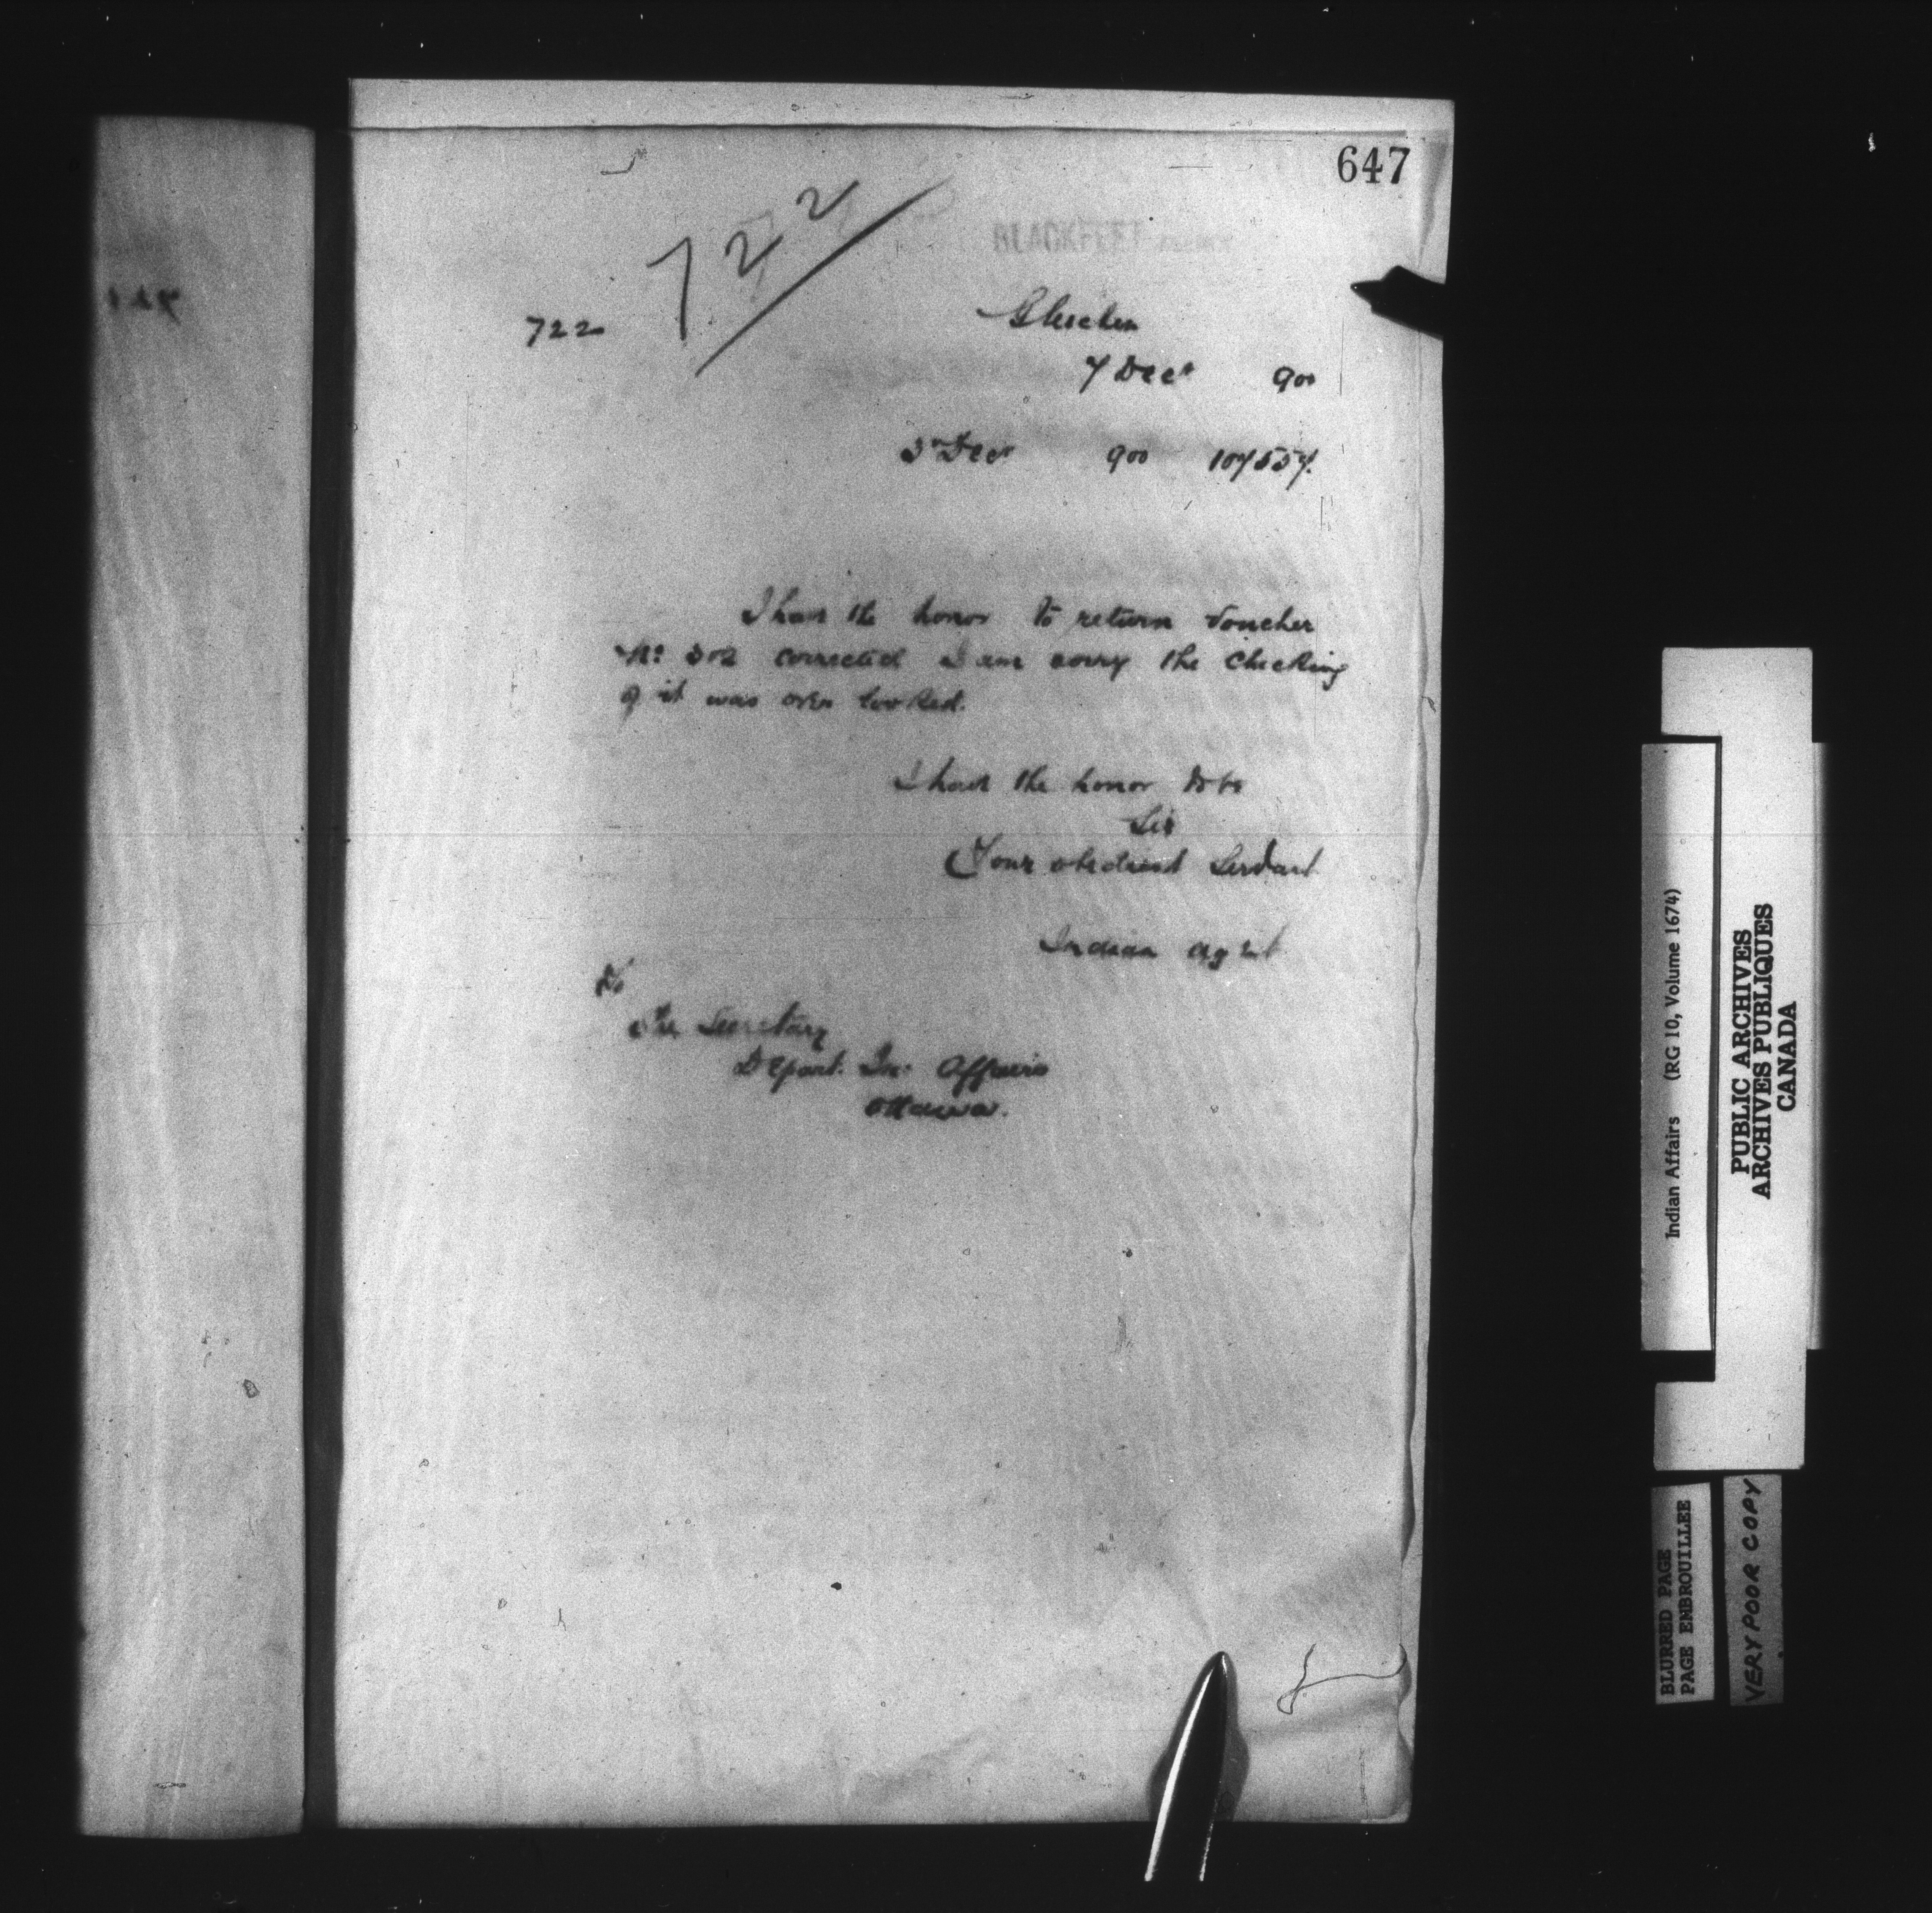 647
722
BLACKFEET AGENCY
722
Gleichen
7 Decr 900
3rd Decr 900 107557.
I have the honor to return Voucher
No: 302 corrected I am sorry the checking
of it was over looked.
I have the honor to be
Sir
Your obedient Servant
Indian Agent
To
The Secretary
Depart. In. Affairs
Ottawa.
Indian Affairs (RG 10, Volume 1674)
PUBLIC ARCHIVES
ARCHIVES PUBLIQUES
CANADA
BLURRED PAGE
PAGE EMBROUILLEE
VERY POOR COPY